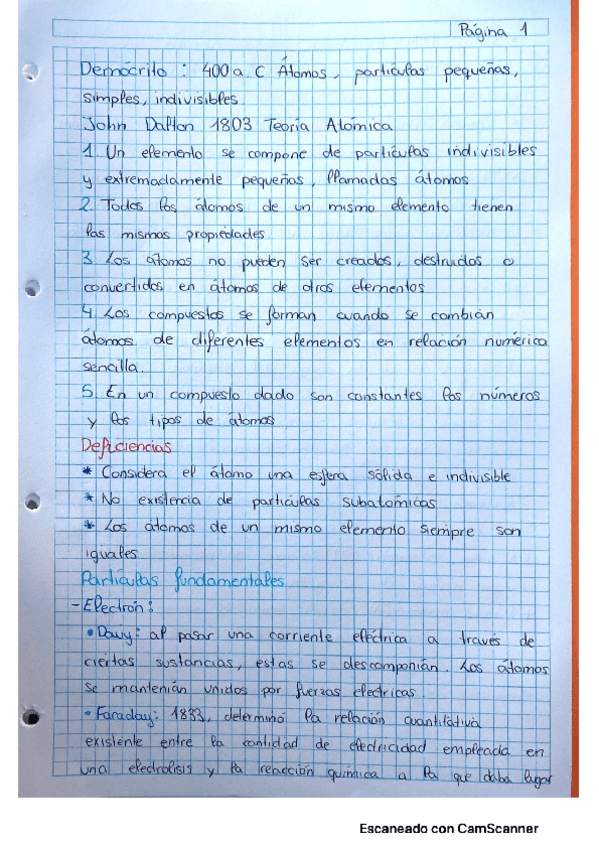 Página 1
Demócrito : 400 a. C Átomos, partículas pequeñas,
simples, indivisibles.
John Dalton 1803 Teoría Atómica
1. Un elemento se compone de partículas indivisibles
y extremadamente pequeñas, llamadas átomos
2. Todos los átomos de un mismo elemento tienen
las mismas propiedades
3. Los átomos no pueden ser creados, destruidos o
convertidos en átomos de otros elementos
4. Los compuestos se forman cuando se combian
átomos de diferentes elementos en relación numérica
sencilla.
5. En un compuesto dado son constantes los números
y los tipos de átomos
Deficiencias
* Considera el átomo una esfera sólida e indivisible
* No existencia de partículas subatómicas
* Los atomos de un mismo elemento siempre son
iguales.
Partículas fundamentales
- Electrón:
• Davy: al pasar una corriente eléctrica a través de
ciertas sustancias, estas se descomponían. Los átomos
se mantenían unidos por fuerzas electricas.
• Faraday: 1833, determinó la relación cuantitativa
existente entre la cantidad de electricidad empleada en
una electrólisis y la reacción química a la que daba lugar
Escaneado con CamScanner